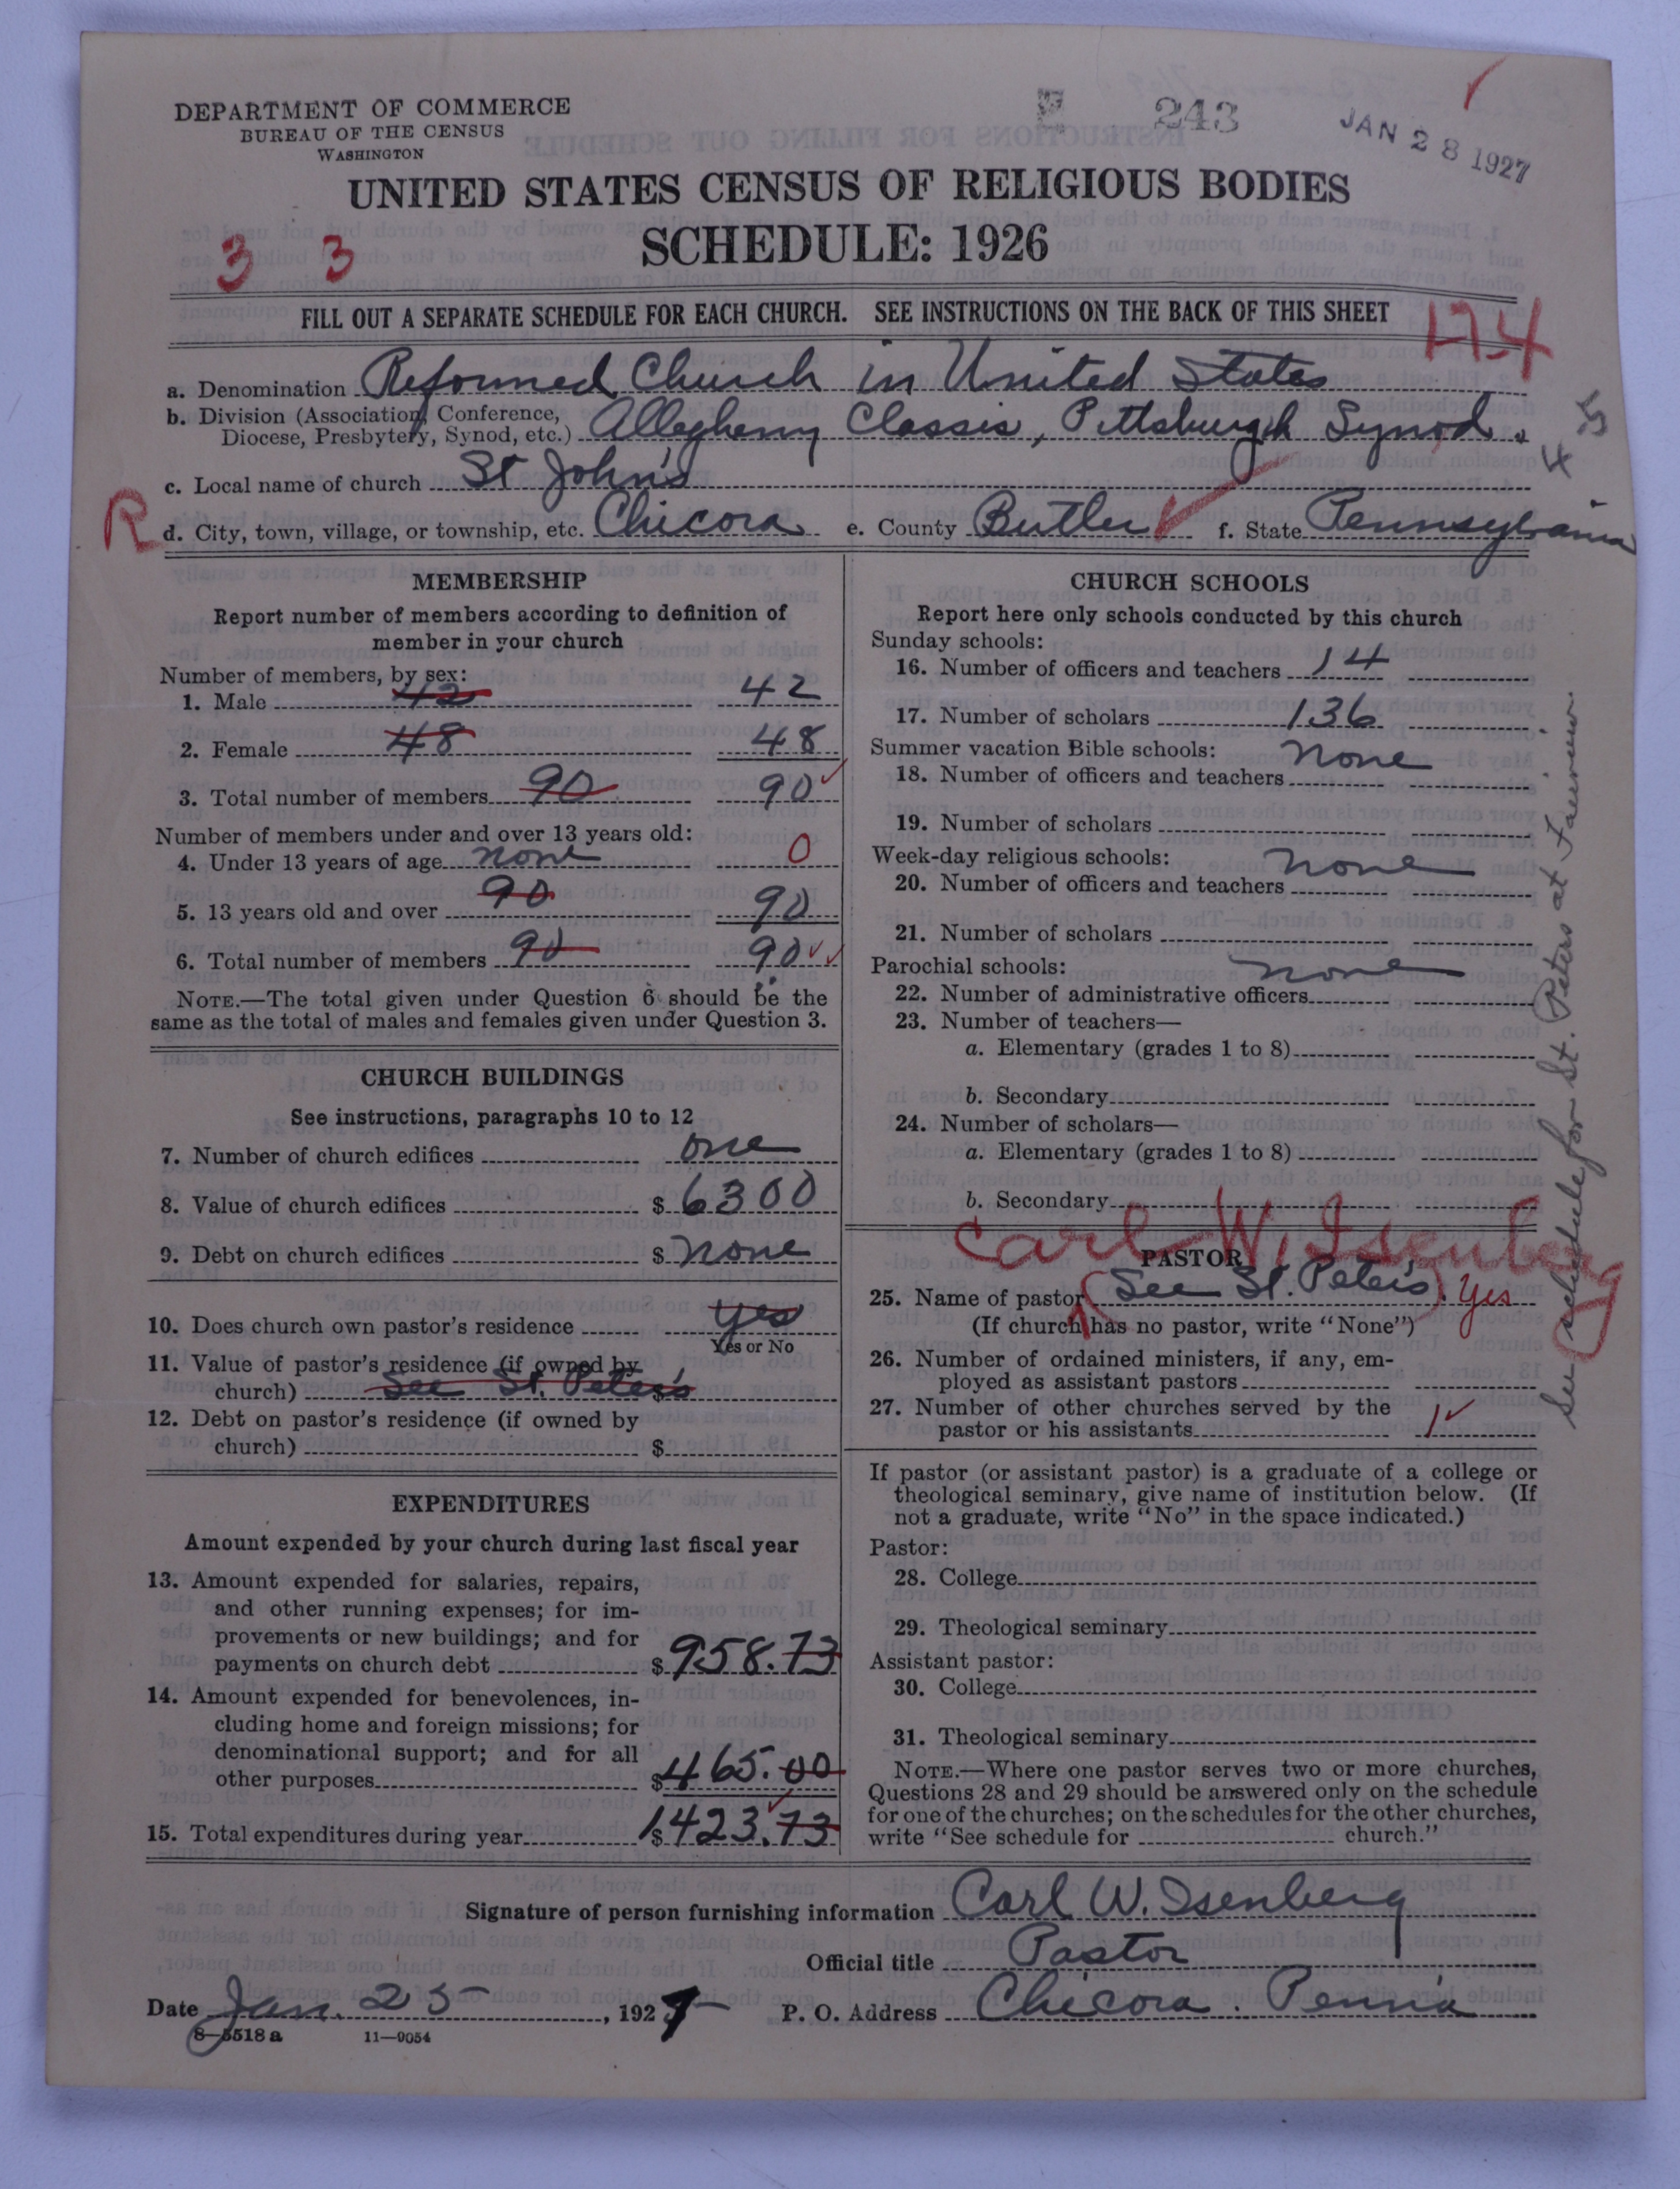 DEPARTMENT OF COMMERCE
BUREAU OF THE CENSUS
WASHINGTON
243
JAN 28 1927
UNITED STATES CENSUS OF RELIGIOUS BODIES
SCHEDULE: 1926
3 3
FILL OUT A SEPARATE SCHEDULE FOR EACH CHURCH. SEE INSTRUCTIONS ON THE BACK OF THIS SHEET
17-4
a. Denomination Reformed Church in United States
b. Division (Association, Conference,
Diocese, Presbytery, Synod, etc.) Allegheny Classis, Pittsburgh Synod.
4 5
c. Local name of church St John's
R
d. City, town, village, or township, etc. Chicora e. County Butler f. State Pennsylvania
MEMBERSHIP
Report number of members according to definition of
member in your church
Number of members, by sex:
1. Male 42 42
2. Female 48 48
3. Total number of members 90 90
Number of members under and over 13 years old:
4. Under 13 years of age none 0
5. 13 years old and over 90 90
6. Total number of members 90 90
NOTE.—The total given under Question 6 should be the
same as the total of males and females given under Question 3.
CHURCH BUILDINGS
See instructions, paragraphs 10 to 12
7. Number of church edifices one
8. Value of church edifices $ 6300
9. Debt on church edifices $ none
10. Does church own pastor's residence yes
Yes or No
11. Value of pastor's residence (if owned by
church) See St. Peter's
12. Debt on pastor's residence (if owned by
church) $
EXPENDITURES
Amount expended by your church during last fiscal year
13. Amount expended for salaries, repairs,
and other running expenses; for im-
provements or new buildings; and for
payments on church debt $ 958.73
14. Amount expended for benevolences, in-
cluding home and foreign missions; for
denominational support; and for all
other purposes $ 465.00
15. Total expenditures during year $ 1423.73
CHURCH SCHOOLS
Report here only schools conducted by this church
Sunday schools:
16. Number of officers and teachers 14
17. Number of scholars 136
Summer vacation Bible schools: none
18. Number of officers and teachers
19. Number of scholars
Week-day religious schools: none
20. Number of officers and teachers
21. Number of scholars
Parochial schools: none
22. Number of administrative officers
23. Number of teachers—
a. Elementary (grades 1 to 8)
b. Secondary
24. Number of scholars—
a. Elementary (grades 1 to 8)
b. Secondary
Carl W. Isenberg
PASTOR
25. Name of pastor (See St. Peter's). Yes
(If church has no pastor, write "None")
26. Number of ordained ministers, if any, em-
ployed as assistant pastors
27. Number of other churches served by the
pastor or his assistants 1
If pastor (or assistant pastor) is a graduate of a college or
theological seminary, give name of institution below. (If
not a graduate, write "No" in the space indicated.)
Pastor:
28. College
29. Theological seminary
Assistant pastor:
30. College
31. Theological seminary
NOTE.—Where one pastor serves two or more churches,
Questions 28 and 29 should be answered only on the schedule
for one of the churches; on the schedules for the other churches,
write "See schedule for church."
See schedule for St. Peters at Fairview
Signature of person furnishing information Carl W. Isenberg
Official title Pastor
Date Jan. 25, 1927 P. O. Address Chicora. Penna
8—5518 a 11—9054